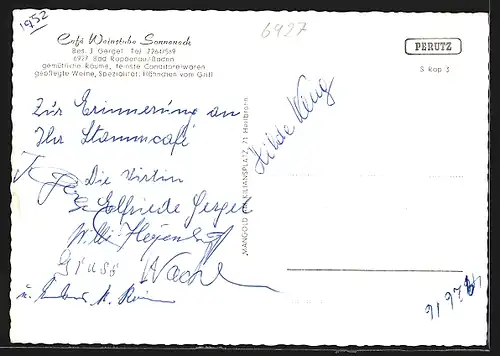 1952
6927
Café Weinstube Sonneneck
Bes. I Gerget Tel. 7264/569
6927 Bad Rappenau/Baden
gemütliche Räume, feinste Conditoreiwaren
gepflegte Weine, Spezialität: Hähnchen vom Grill
PERUTZ
S Rap 5
Zur Erinnerung an
Ihr Stammcafé
Die Wirtin
Elfriede Gergel
Willi
Gruss
u.
Hilde King
MANGOLD KILIANSPLATZ, 71 Heilbronn